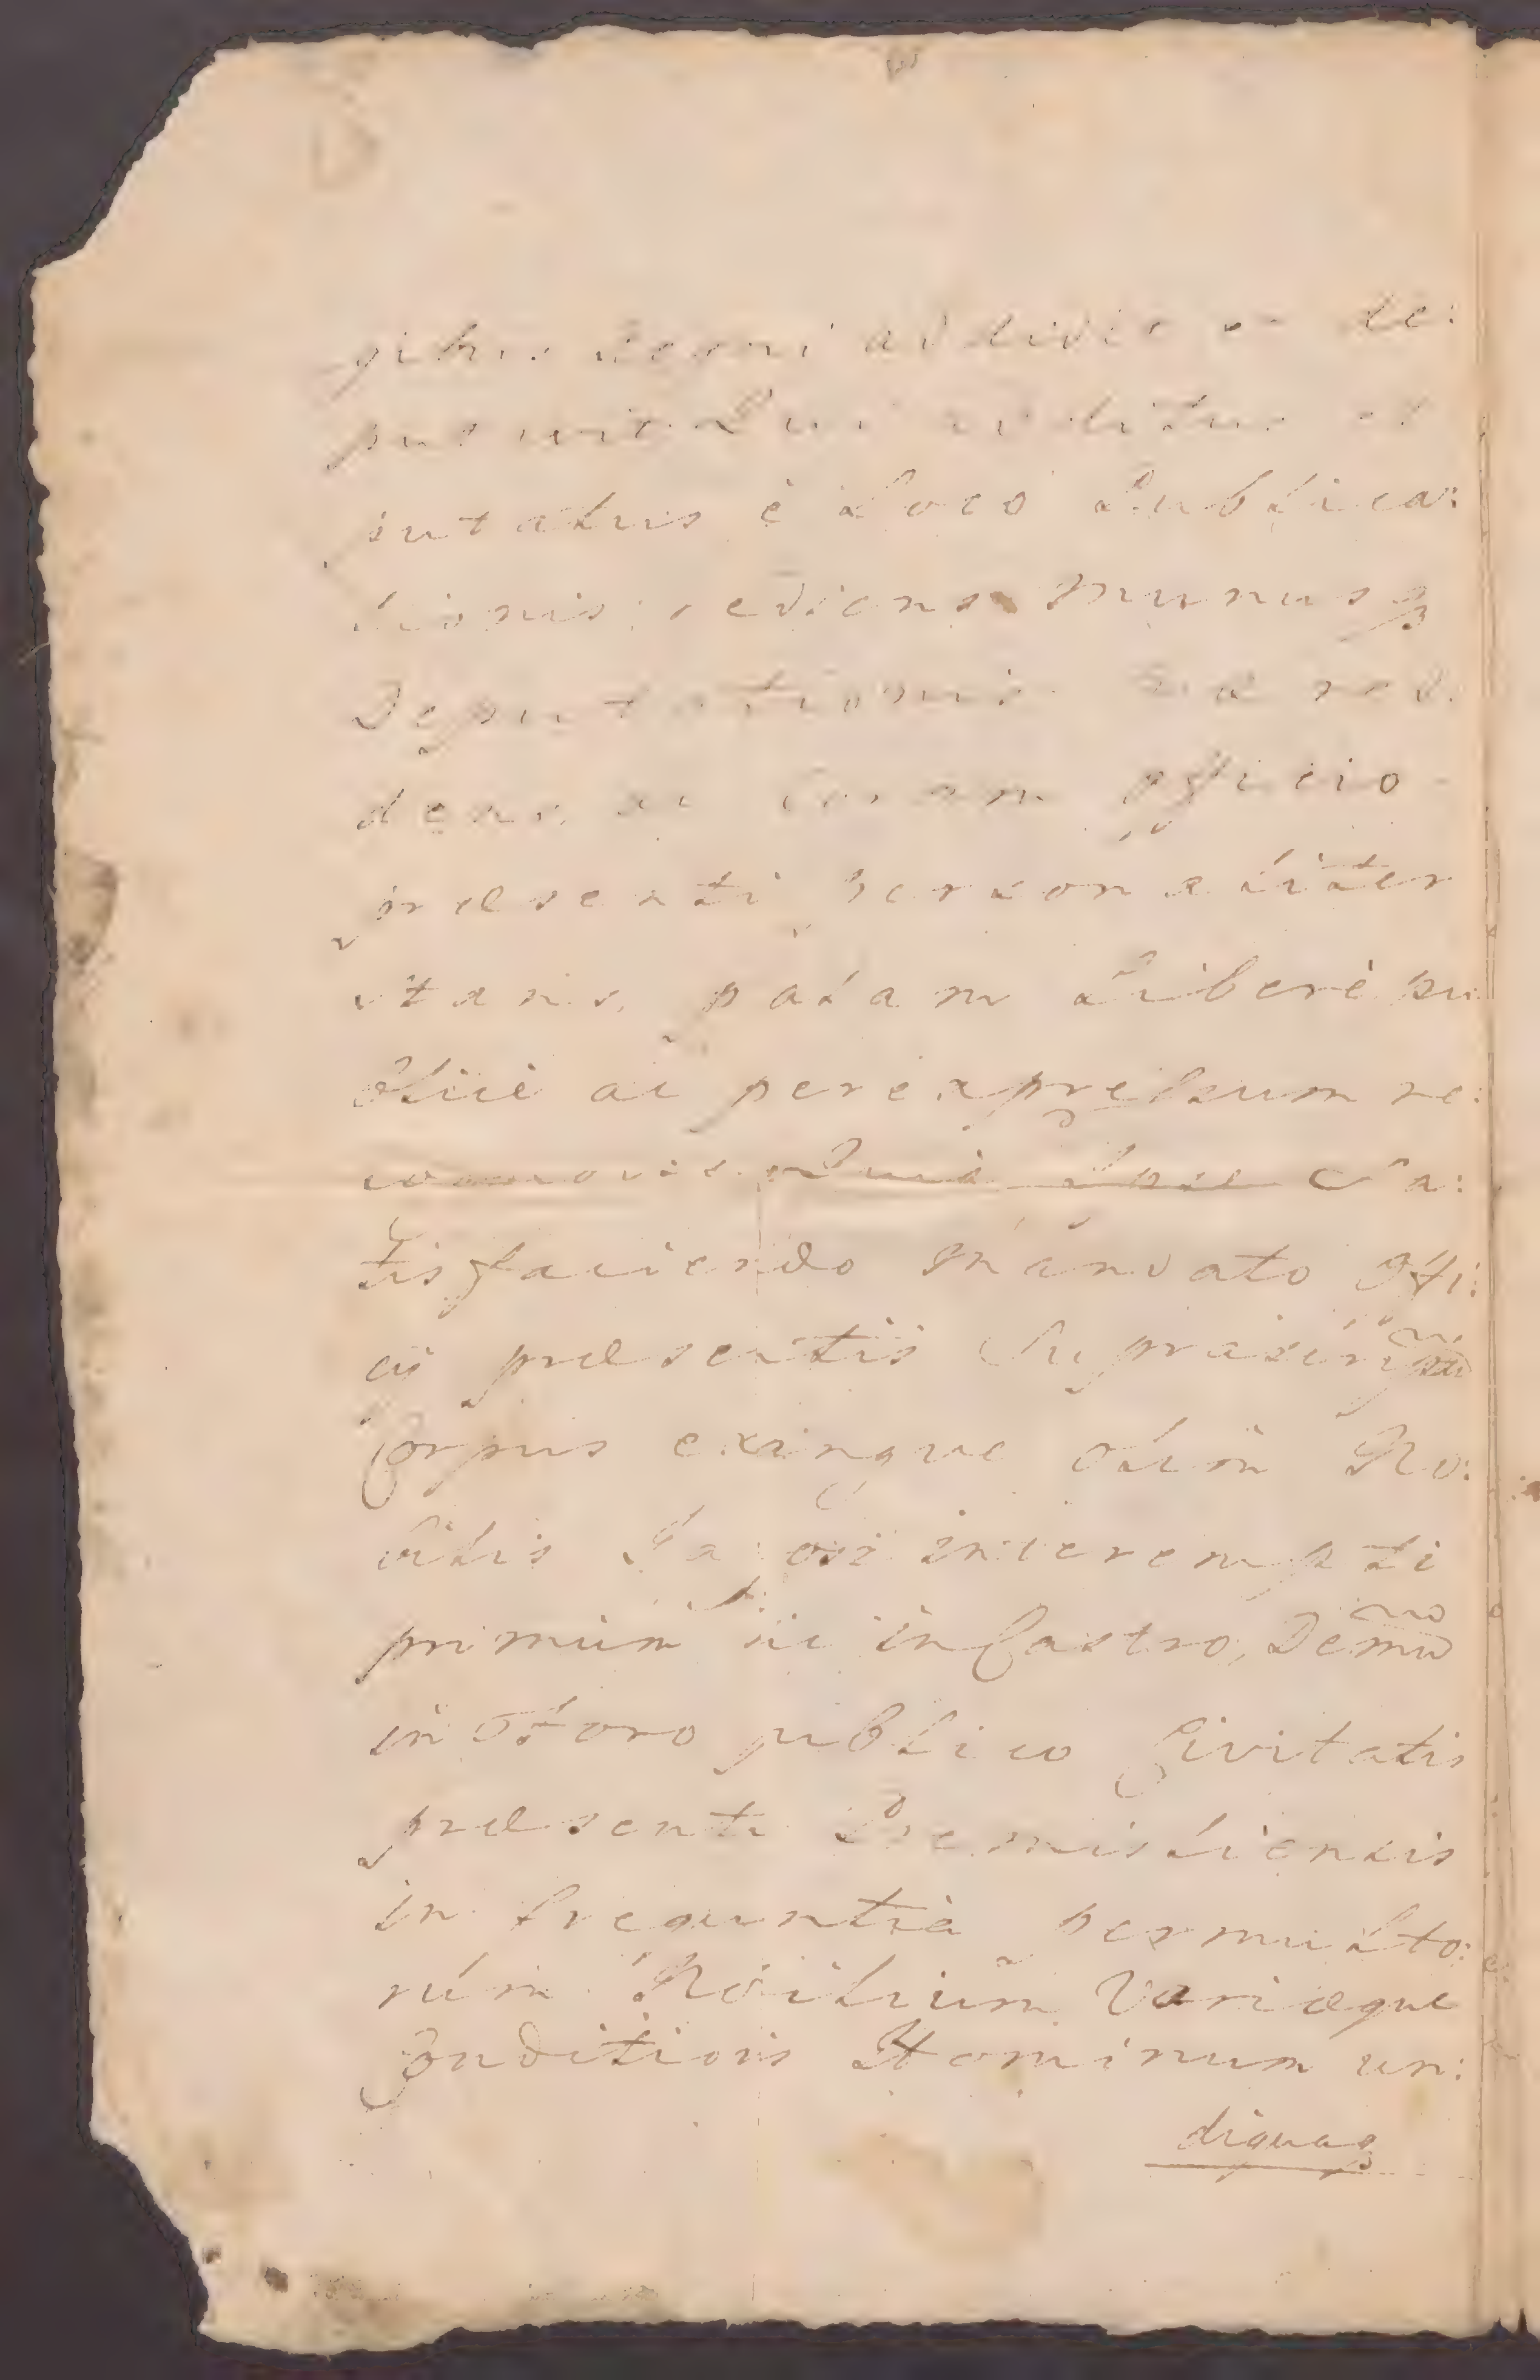 gibus Regni addidit et De:
putavit Qui additus et
putatus è Loco Publica:
tionis rediens Munusq3
Deputationis suæ red:
dens ac coram Officio
præsenti personaliter
stans, palam Liberè pu
blicè ac per expressum re:
cognovit Quia Ipse Sa:
tisfaciendo Mandato Offi:
cii præsentis Suprascripti
Corpus exangue olim No:
bilis interempti
primum hic in Castro, Demũ
in Foro publico Civitatis
præsenti Premisliensis
in frequentia permulto:
rum Nobilium Variæque
Conditionis Hominum un:
diquaq3